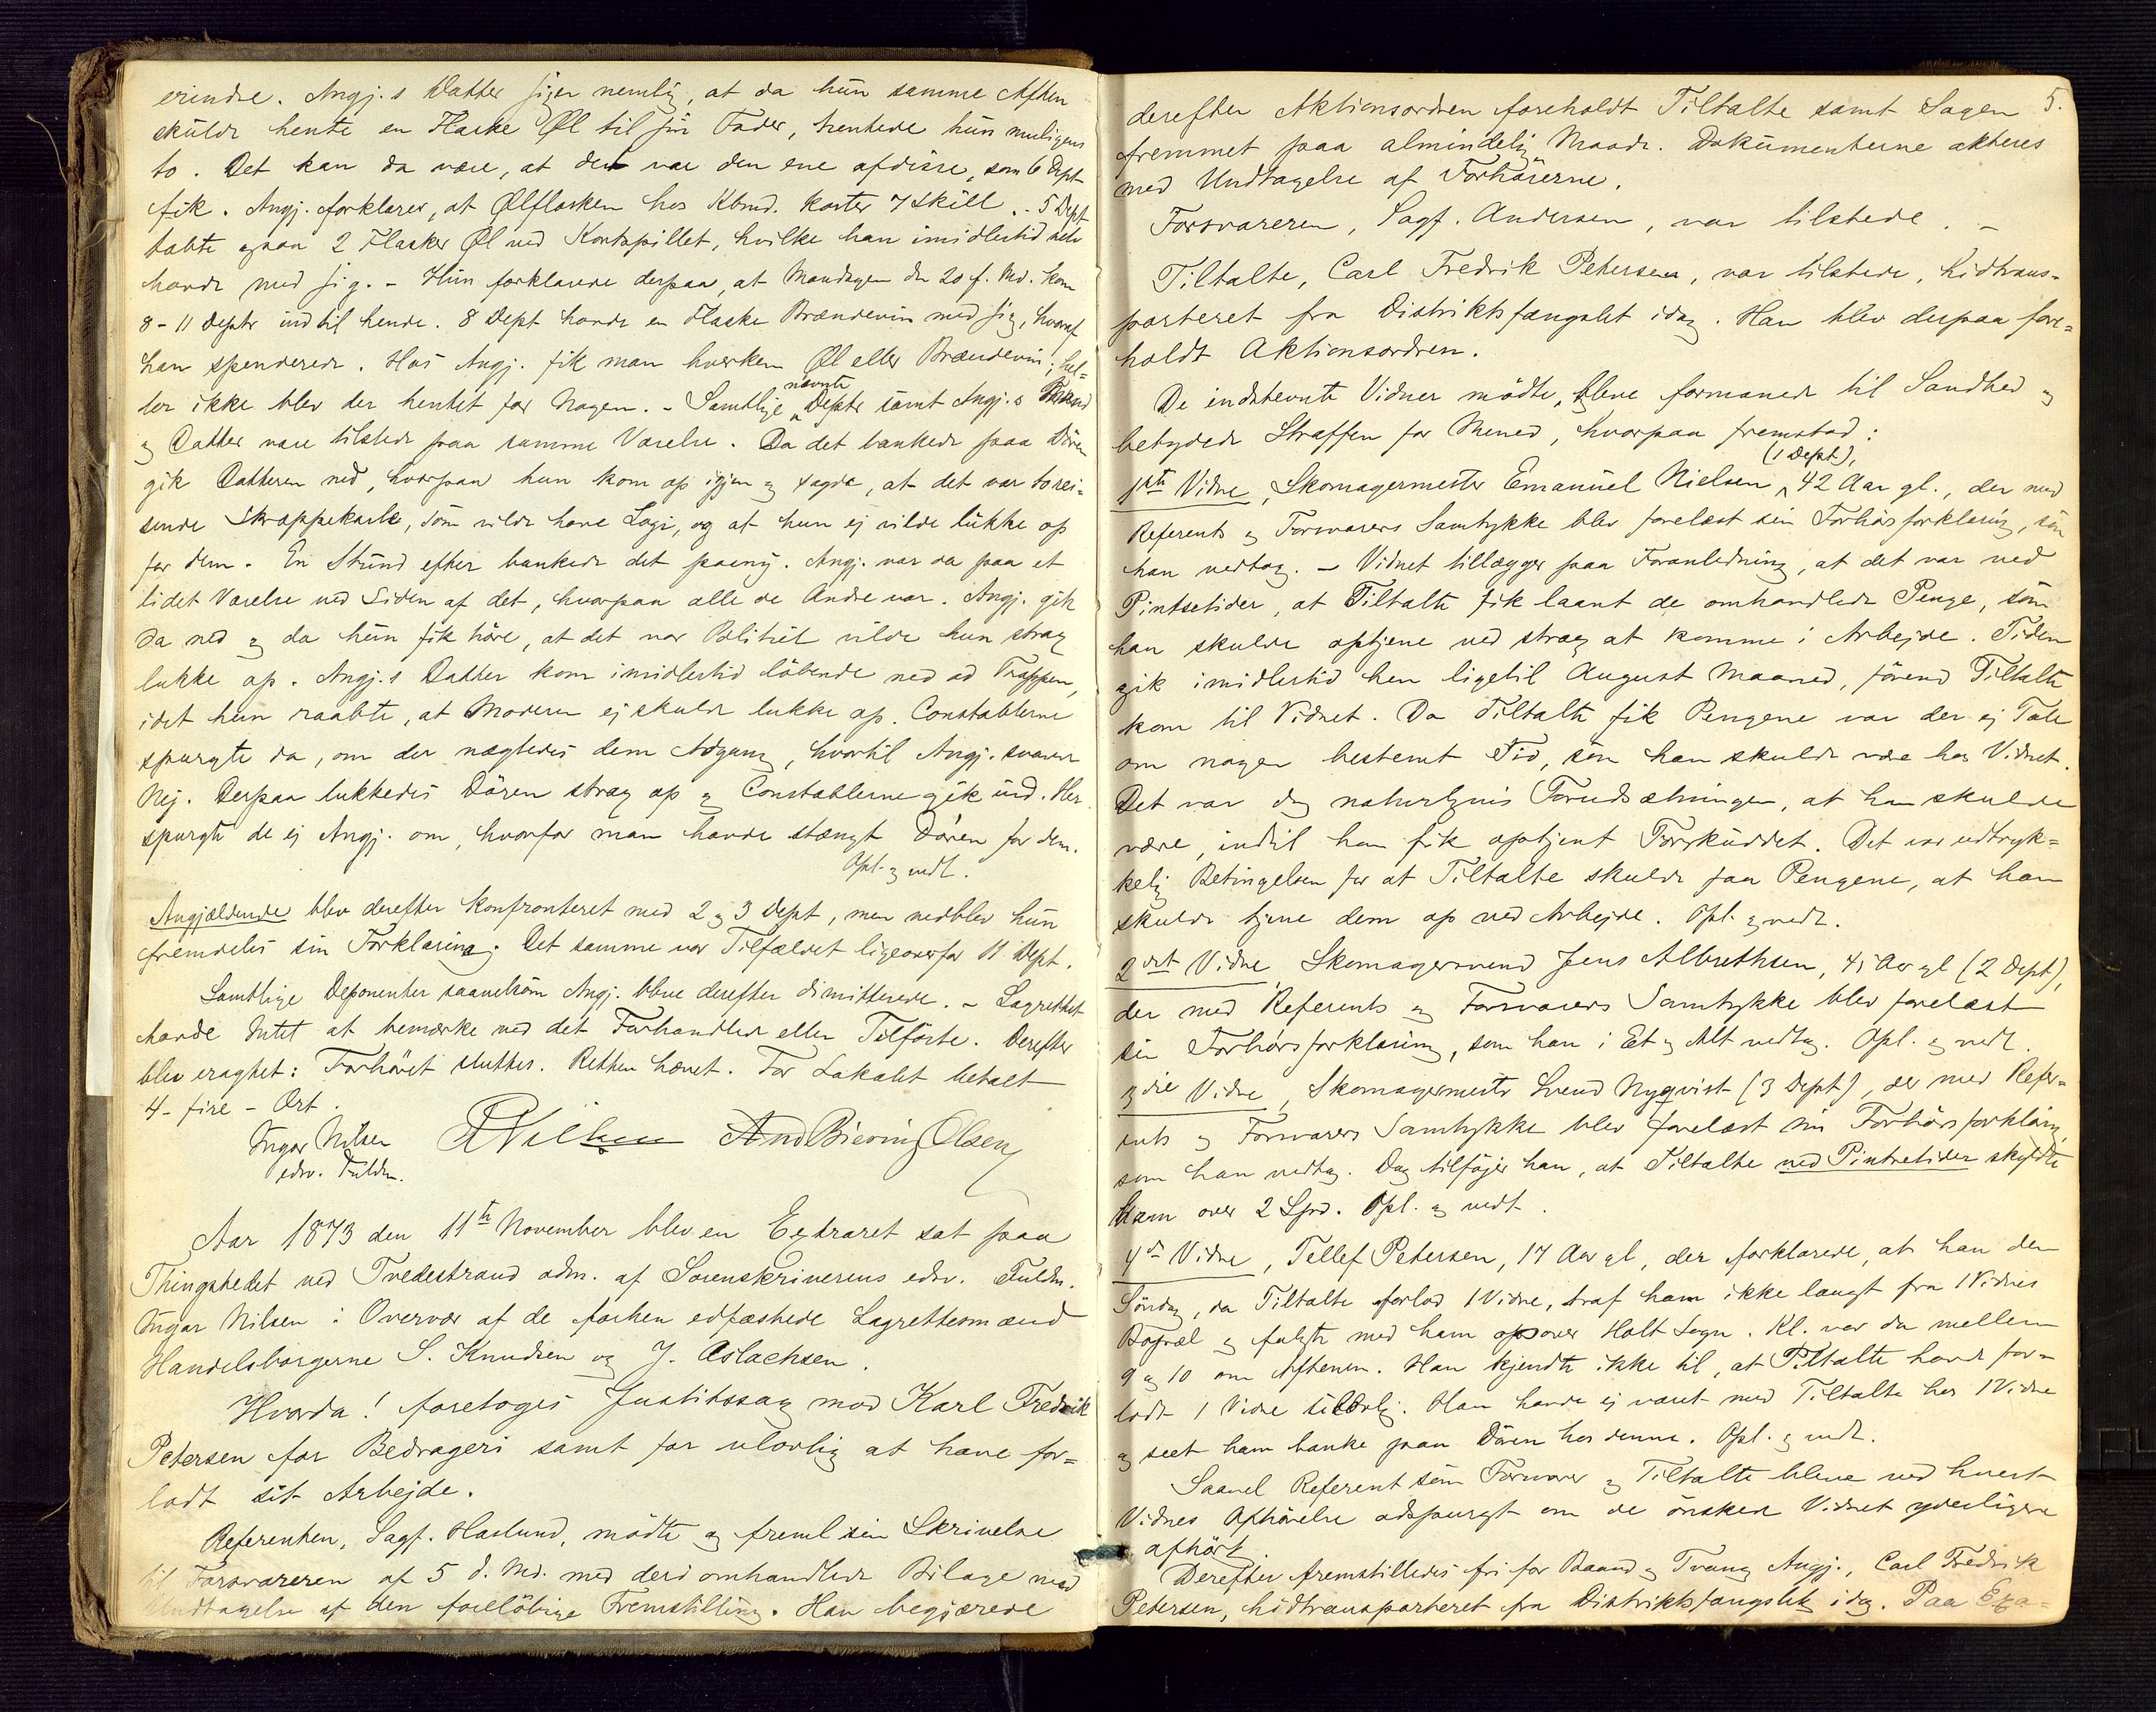 erindre. Angj.s Datter siger nemlig, at da hun samme Aften
skulde hente en Flaske Øl til sin Fader, hentede hun muligens
to. Det kan da være, at det var den ene af disse, som 6 Dept
fik. Angj. forklarer, at Ølflasken hos Kbmd. koster 7 Skill. - 5 Dept
tabte ogsaa 2 Flasker Øl ved Kortspillet, hvilke han imidlertid selv
havde med sig. - Hun forklarede derpaa, at Mandagen den 20 f. Md. kom
8-11 Depts ind til hende. 8 Dept havde en Flaske Brændevin med sig, hvoraf
han spenderede. Hos Angj. fik man hverken Øl eller Brændevin; hel=
ler ikke blev der hentet for Nogen. - Samtlige nævnte Depts samt Angj.s Mand
og Datter vare tilstede paa samme Værelse. Da det bankede paa Døren
gik Datteren ned, hvorpaa hun kom op igjen og sagde, at det var to rei=
sende Skræppekarle, som vilde have Logi, og at hun ej vilde lukke op
for dem. En Stund efter bankede det paany. Angj. var da paa et
lidet Værelse ved Siden af det, hvorpaa alle de Andre var. Angj. gik
da ned og da hun fik høre, at det var Politiet vilde hun strax
lukke op. Angj.s Datter kom imidlertid løbende ned ad Trappen,
idet hun raabte, at Moderen ej skulde lukke op. Constablerne
spurgte da, om der nægtedes dem Adgang, hvortil Angj. svarede
Nej. Derpaa lukkedes Døren strax op og Constablerne gik ind. Her
spurgte de ej Angj. om, hvorfor man havde stængt Døren for dem.
Opl. og vedt.
Angjældende blev derefter konfronteret med 2 og 3 Dept, men vedblev hun
fremdeles sin Forklaring. Det samme var Tilfældet ligeoverfor 11 Dept.
Samtlige Deponenter saavelsom Angj. bleve derefter dimitterede. - Lagrettet
havde Intet at bemærke ved det Forhandlede eller Tilførte. Derefter
blev eragtet: Forhøret sluttes. Retten hævet. For Lokalet betalt
4 - fire - Ort.
Ingar Nilsen
edsv. Fuldm.
And Biering Olsen
Aar 1873 den 11te November blev en Extraret sat paa
Thingstedet ved Tvedestrand adm. af Sorenskriverens edsv. Fuldm.
Ingar Nilsen i Overvær af de forhen edfæstede Lagrettesmænd
Handelsborgerne S. Knudsen og J. Aslachsen.
Hvorda! foretoges Justitssag mod Karl Fredrik
Petersen for Bedrageri samt for ulovlig at have for=
ladt sit Arbejde.
Referenten, Sagf. Haslund, mødte og freml. sin Skrivelse
til Forsvareren af 5 d. Md. med deri omhandlede Bilage med
Undtagelse af den foreløbige Fremstilling. Han begjærede
5.
derefter Aktionsordren foreholdt Tiltalte samt Sagen
fremmet paa almindelig Maade. Dokumenterne akteres
med Undtagelse af Forhørerne.
Forsvareren, Sagf. Andersen, var tilstede. -
Tiltalte, Carl Fredrik Petersen, var tilstede, hidtrans-
porteret fra Distriktsfængslet idag. Han blev derpaa fore=
holdt Aktionsordren.
De indstevnte Vidner mødte, bleve formanede til Sandhed og
betydede Straffen for Mened, hvorpaa fremstod:
1ste Vidne, Skomagermester Emanuel Nielsen (1 Dept), 42 Aar gl., der med
Referents og Forsvarers Samtykke blev forelæst sin Forhørsforklaring, som
han vedtog. - Vidnet tillægger paa Foranledning, at det var ved
Pintsetider, at Tiltalte fik laant de omhandlede Penge, som
han skulde optjene ved strax at komme i Arbejde. Tiden
gik imidlertid hen ligetil August Maaned, førend Tiltalte
kom til Vidnet. Da Tiltalte fik Pengene var der ej Tale
om nogen bestemt Tid, som han skulde være hos Vidnet.
Det var dog naturligvis Forudsætningen, at han skulde
være, indtil han fik optjent Forskuddet. Det var udtryk=
kelig Betingelsen for at Tiltalte skulde faa Pengene, at han
skulde tjene dem op ved Arbejde. Opl. og vedt.
2det Vidne, Skomagersvend Jens Albrethsen, 41 Aar gl (2 Dept),
der med Referents og Forsvarers Samtykke blev forelæst
sin Forhørsforklaring, som han i Et og Alt vedtog. Opl. og vedt.
3die Vidne, Skomagermester Svend Nyqvist (3 Dept), der med Refer=
ents og Forsvarers Samtykke blev forelæst sin Forhørsforklaring,
som han vedtog. Dog tilføjer han, at Tiltalte ved Pintsetider skyldte
ham over 2 Spd. Opl. og vedt.
4de Vidne, Tellef Petersen, 17 Aar gl, der forklarede, at han den
Søndag, da Tiltalte forlod 1 Vidne, traf ham ikke langt fra 1 Vidnes
Bopæl og fulgte med ham opover Holt Sogn. Kl. var da mellem
9 og 10 om Aftenen. Han kjendte ikke til, at Tiltalte havde for=
ladt 1 Vidne ulovlig. Han havde ej været med Tiltalte hos 1 Vidne
og seet ham banke paa Døren hos denne. Opl. og vedt.
Saavel Referent som Forsvarer og Tiltalte bleve ved hvert
Vidnes Afhørelse adspurgt om de ønskede Vidnet yderligere
afhørt.
Derefter fremstilledes fri for Baand og Tvang Angj., Carl Fredrik
Petersen, hidtransporteret fra Distriktsfængslet idag. Paa Exa=